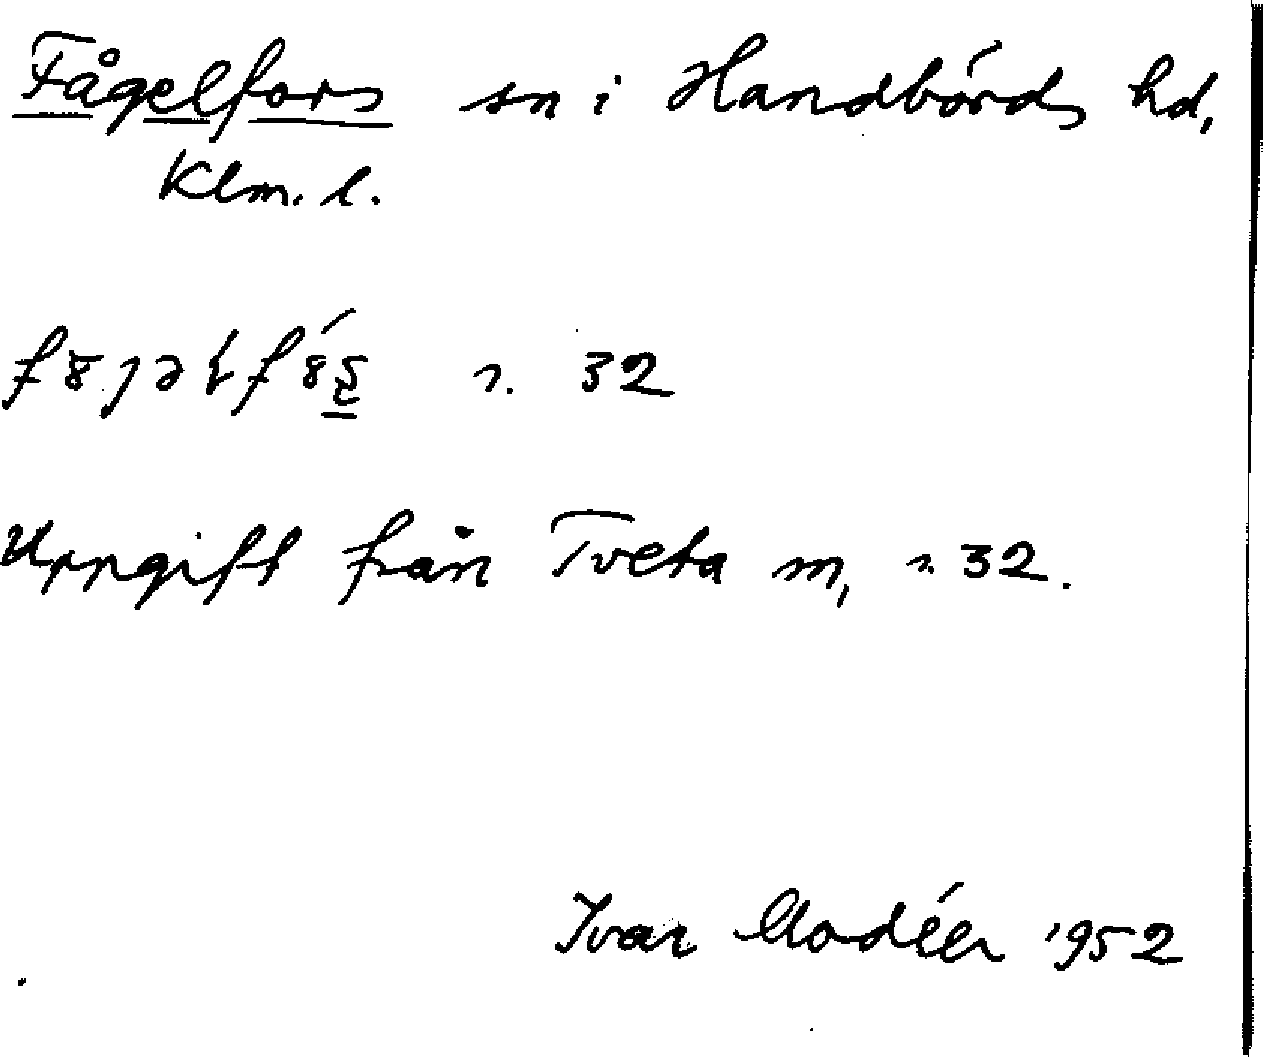 Fågelfors sn i Handbörds hd,
Klm. l.
s. 32
Uppgift från Tveta m, s. 32.
Ivar Modéer 1952